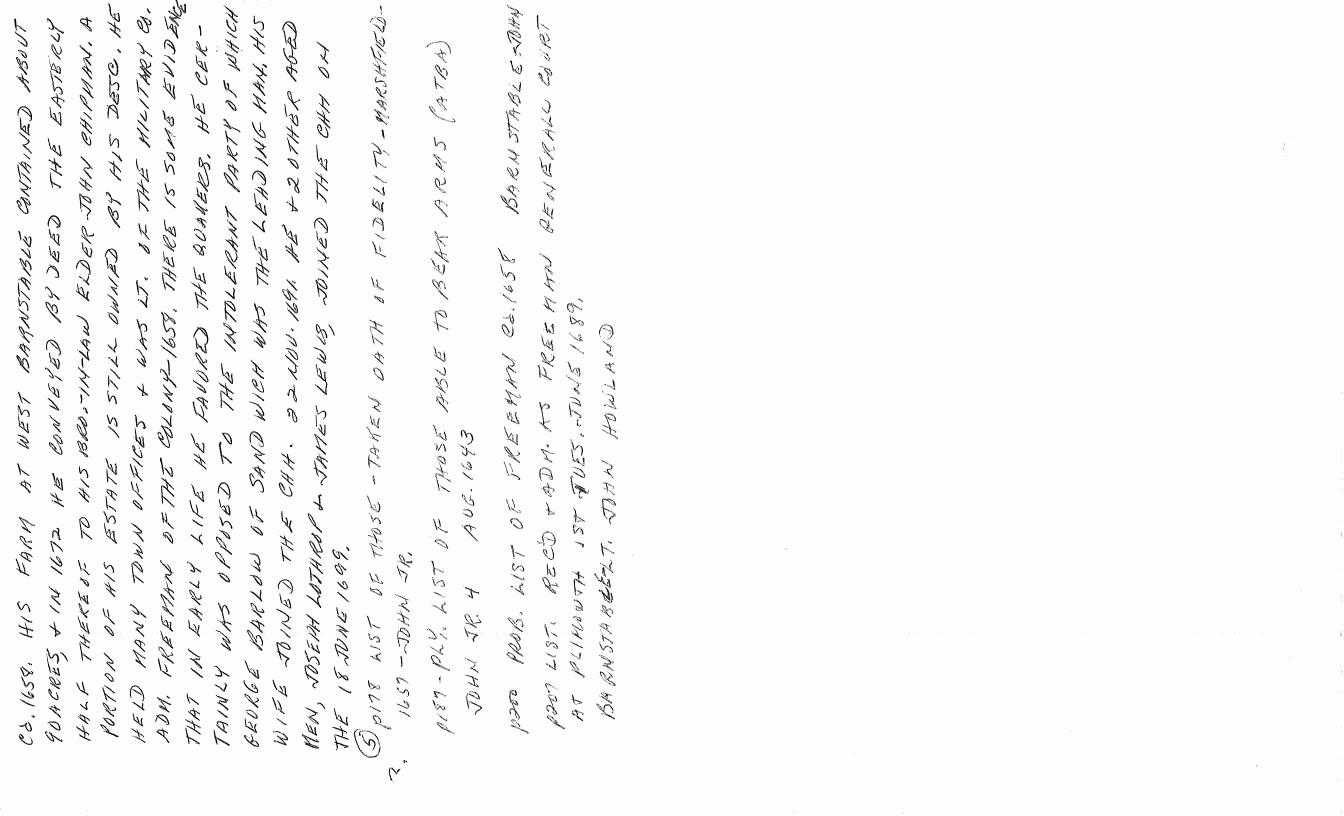 Co. 1658. HIS FARM AT WEST BARNSTABLE CONTAINED ABOUT
90 ACRES, + IN 1672 HE CONVEYED BY DEED THE EASTERLY
HALF THEREOF TO HIS BRO.-IN-LAW ELDER JOHN CHIPMAN. A
PORTION OF HIS ESTATE IS STILL OWNED BY HIS DESC. HE
HELD MANY TOWN OFFICES + WAS LT. OF THE MILITARY CO.
ADM. FREEMAN OF THE COLONY-1658. THERE IS SOME EVIDENCE
THAT IN EARLY LIFE HE FAVORED THE QUAKERS. HE CER-
TAINLY WAS OPPOSED TO THE INTOLERANT PARTY OF WHICH
GEORGE BARLOW OF SANDWICH WAS THE LEADING MAN. HIS
WIFE JOINED THE CHH. 22 NOV. 1691 HE + 2 OTHER AGED
MEN, JOSEPH LOTHROP + JAMES LEWIS, JOINED THE CHH ON
THE 18 JUNE 1699.
(5) p178 LIST OF THOSE - TAKEN OATH OF FIDELITY - MARSHFIELD-
1657 - JOHN JR.
2.
p187 - PLY. LIST OF THOSE ABLE TO BEAR ARMS (ATBA)
JOHN JR. 4 AUG. 1643
p200 PROB. LIST OF FREEMAN Co. 1658 BARNSTABLE - JOHN
p207 LIST. REC'D + ADM. AS FREEMAN GENERALL COURT
AT PLIMOUTH 1ST TUES. - JUNE 1689.
BARNSTABLE - LT. JOHN HOWLAND